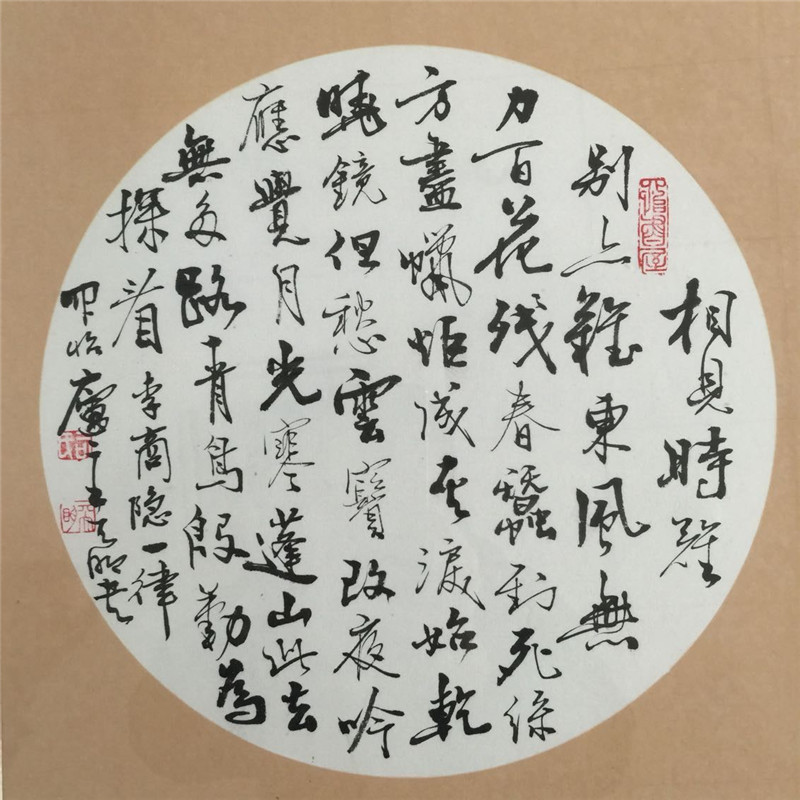 相見時難
别亦難東風無
力百花殘春蠶到死絲
方盡蠟炬成灰淚始乾
曉鏡但愁雲鬢改夜吟
應覺月光寒蓬山此去
無多路青鳥殷勤為
探看李商隐一律